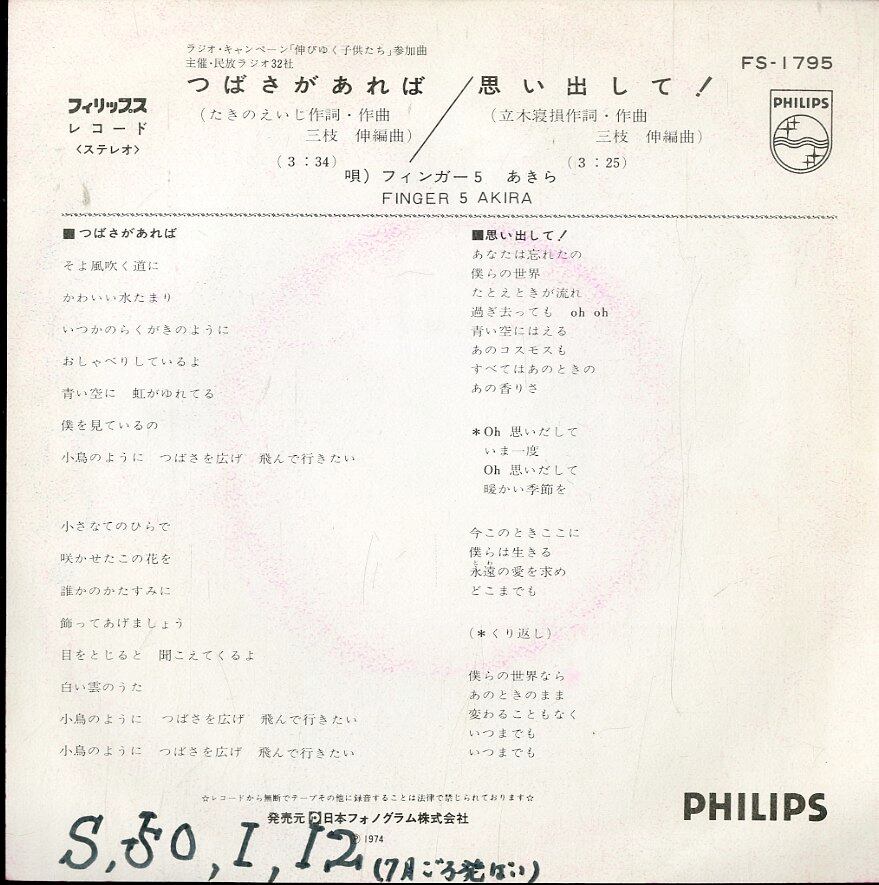 ラジオ・キャンペーン「伸びゆく子供たち」参加曲
主催・民放ラジオ32社
FS-1795
フィリップス
レコード
〈ステレオ〉
つばさがあれば／思い出して！
(たきのえいじ作詞・作曲
三枝 伸編曲)
(3：34)
(立木寝損作詞・作曲
三枝 伸編曲)
(3：25)
PHILIPS
唄）フィンガー5 あきら
FINGER 5 AKIRA
■つばさがあれば
そよ風吹く道に
かわいい水たまり
いつかのらくがきのように
おしゃべりしているよ
青い空に 虹がゆれてる
僕を見ているの
小鳥のように つばさを広げ 飛んで行きたい
小さなてのひらで
咲かせたこの花を
誰かのかたすみに
飾ってあげましょう
目をとじると 聞こえてくるよ
白い雲のうた
小鳥のように つばさを広げ 飛んで行きたい
小鳥のように つばさを広げ 飛んで行きたい
■思い出して！
あなたは忘れたの
僕らの世界
たとえときが流れ
過ぎ去っても oh oh
青い空にはえる
あのコスモスも
すべてはあのときの
あの香りさ
＊Oh 思いだして
いま一度
Oh 思いだして
暖かい季節を
今このときここに
僕らは生きる
永遠の愛を求め
どこまでも
(＊くり返し)
僕らの世界なら
あのときのまま
変わることもなく
いつまでも
いつまでも
☆レコードから無断でテープその他に録音することは法律で禁じられております☆
発売元 P 日本フォノグラム株式会社
Ⓟ 1974
PHILIPS
S,50,1,12
(7月ごろ発ばい)